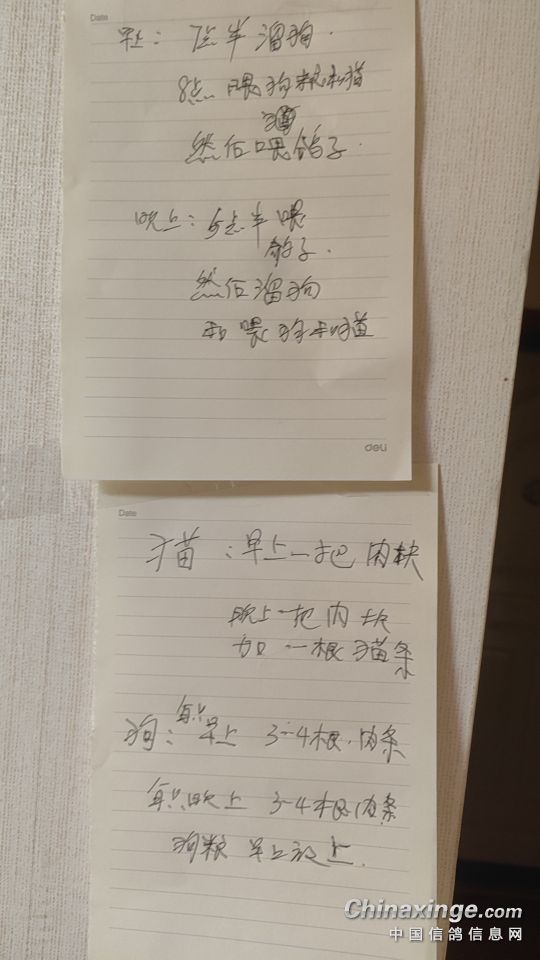 Date
早上：7点半溜狗.
8点喂狗和猫
然后喂鸽子.
晚上：5点半喂
鸽子.
然后溜狗
和喂狗和猫
deli
Date
猫：早上一把肉块
晚上一把肉块
加一根猫条
每只
狗：早上 3-4根.肉条
每只晚上 3-4根肉条
狗粮 早上放上.
Chinaxinge.com
中国信鸽信息网